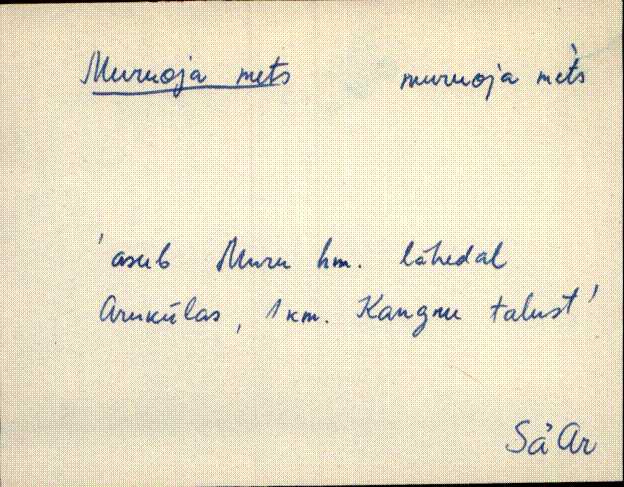 Muruoja mets muruoja met̀s
'asub Muru hm. lähedal
Arukülas, 1 km. Kangru talust'
Sa' Ar